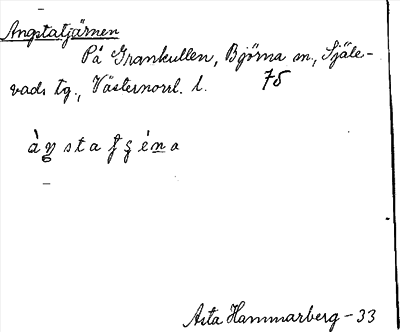 Angstatjärnen
På Grankullen, Björna sn., Själe-
vads tg., Västernorrl. l. 75
Asta Hammarberg - 33